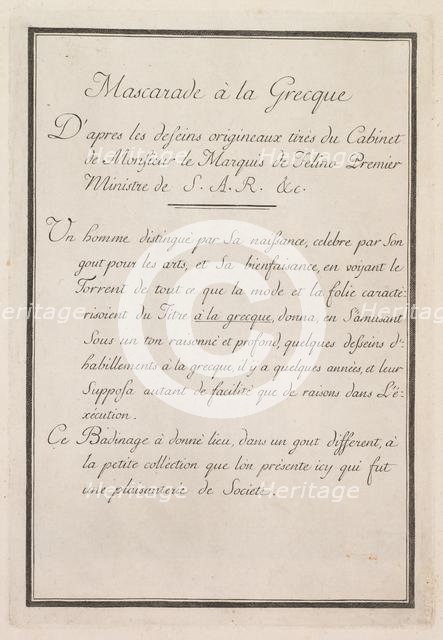 Mascarade à la Grecque
D'apres les desseins origineaux tirès du Cabinet
de Monsieur le Marquis de Felino Premier
Ministre de S. A. R. &c.
Un homme distingué par Sa naissance, celebre par Son
gout pour les arts, et Sa bienfaisance, en voyant le
Torrent de tout ce que la mode et la folie caracté-
risoient du Titre à la grecque, donna, en S'amusant
Sous un ton raisonné et profond, quelques desseins d'-
habillements à la grecque, il y a quelques annés, et leur
Supposa autant de facilité que de raisons dans L'é-
xécution.
Ce Badinage à donné lieu, dans un gout different, à
la petite collèction que lòn présente icy qui fut
une plaisanterie de Societé.
Heritage
Heritage
Heritage
Heritage
Heritage
Heritage